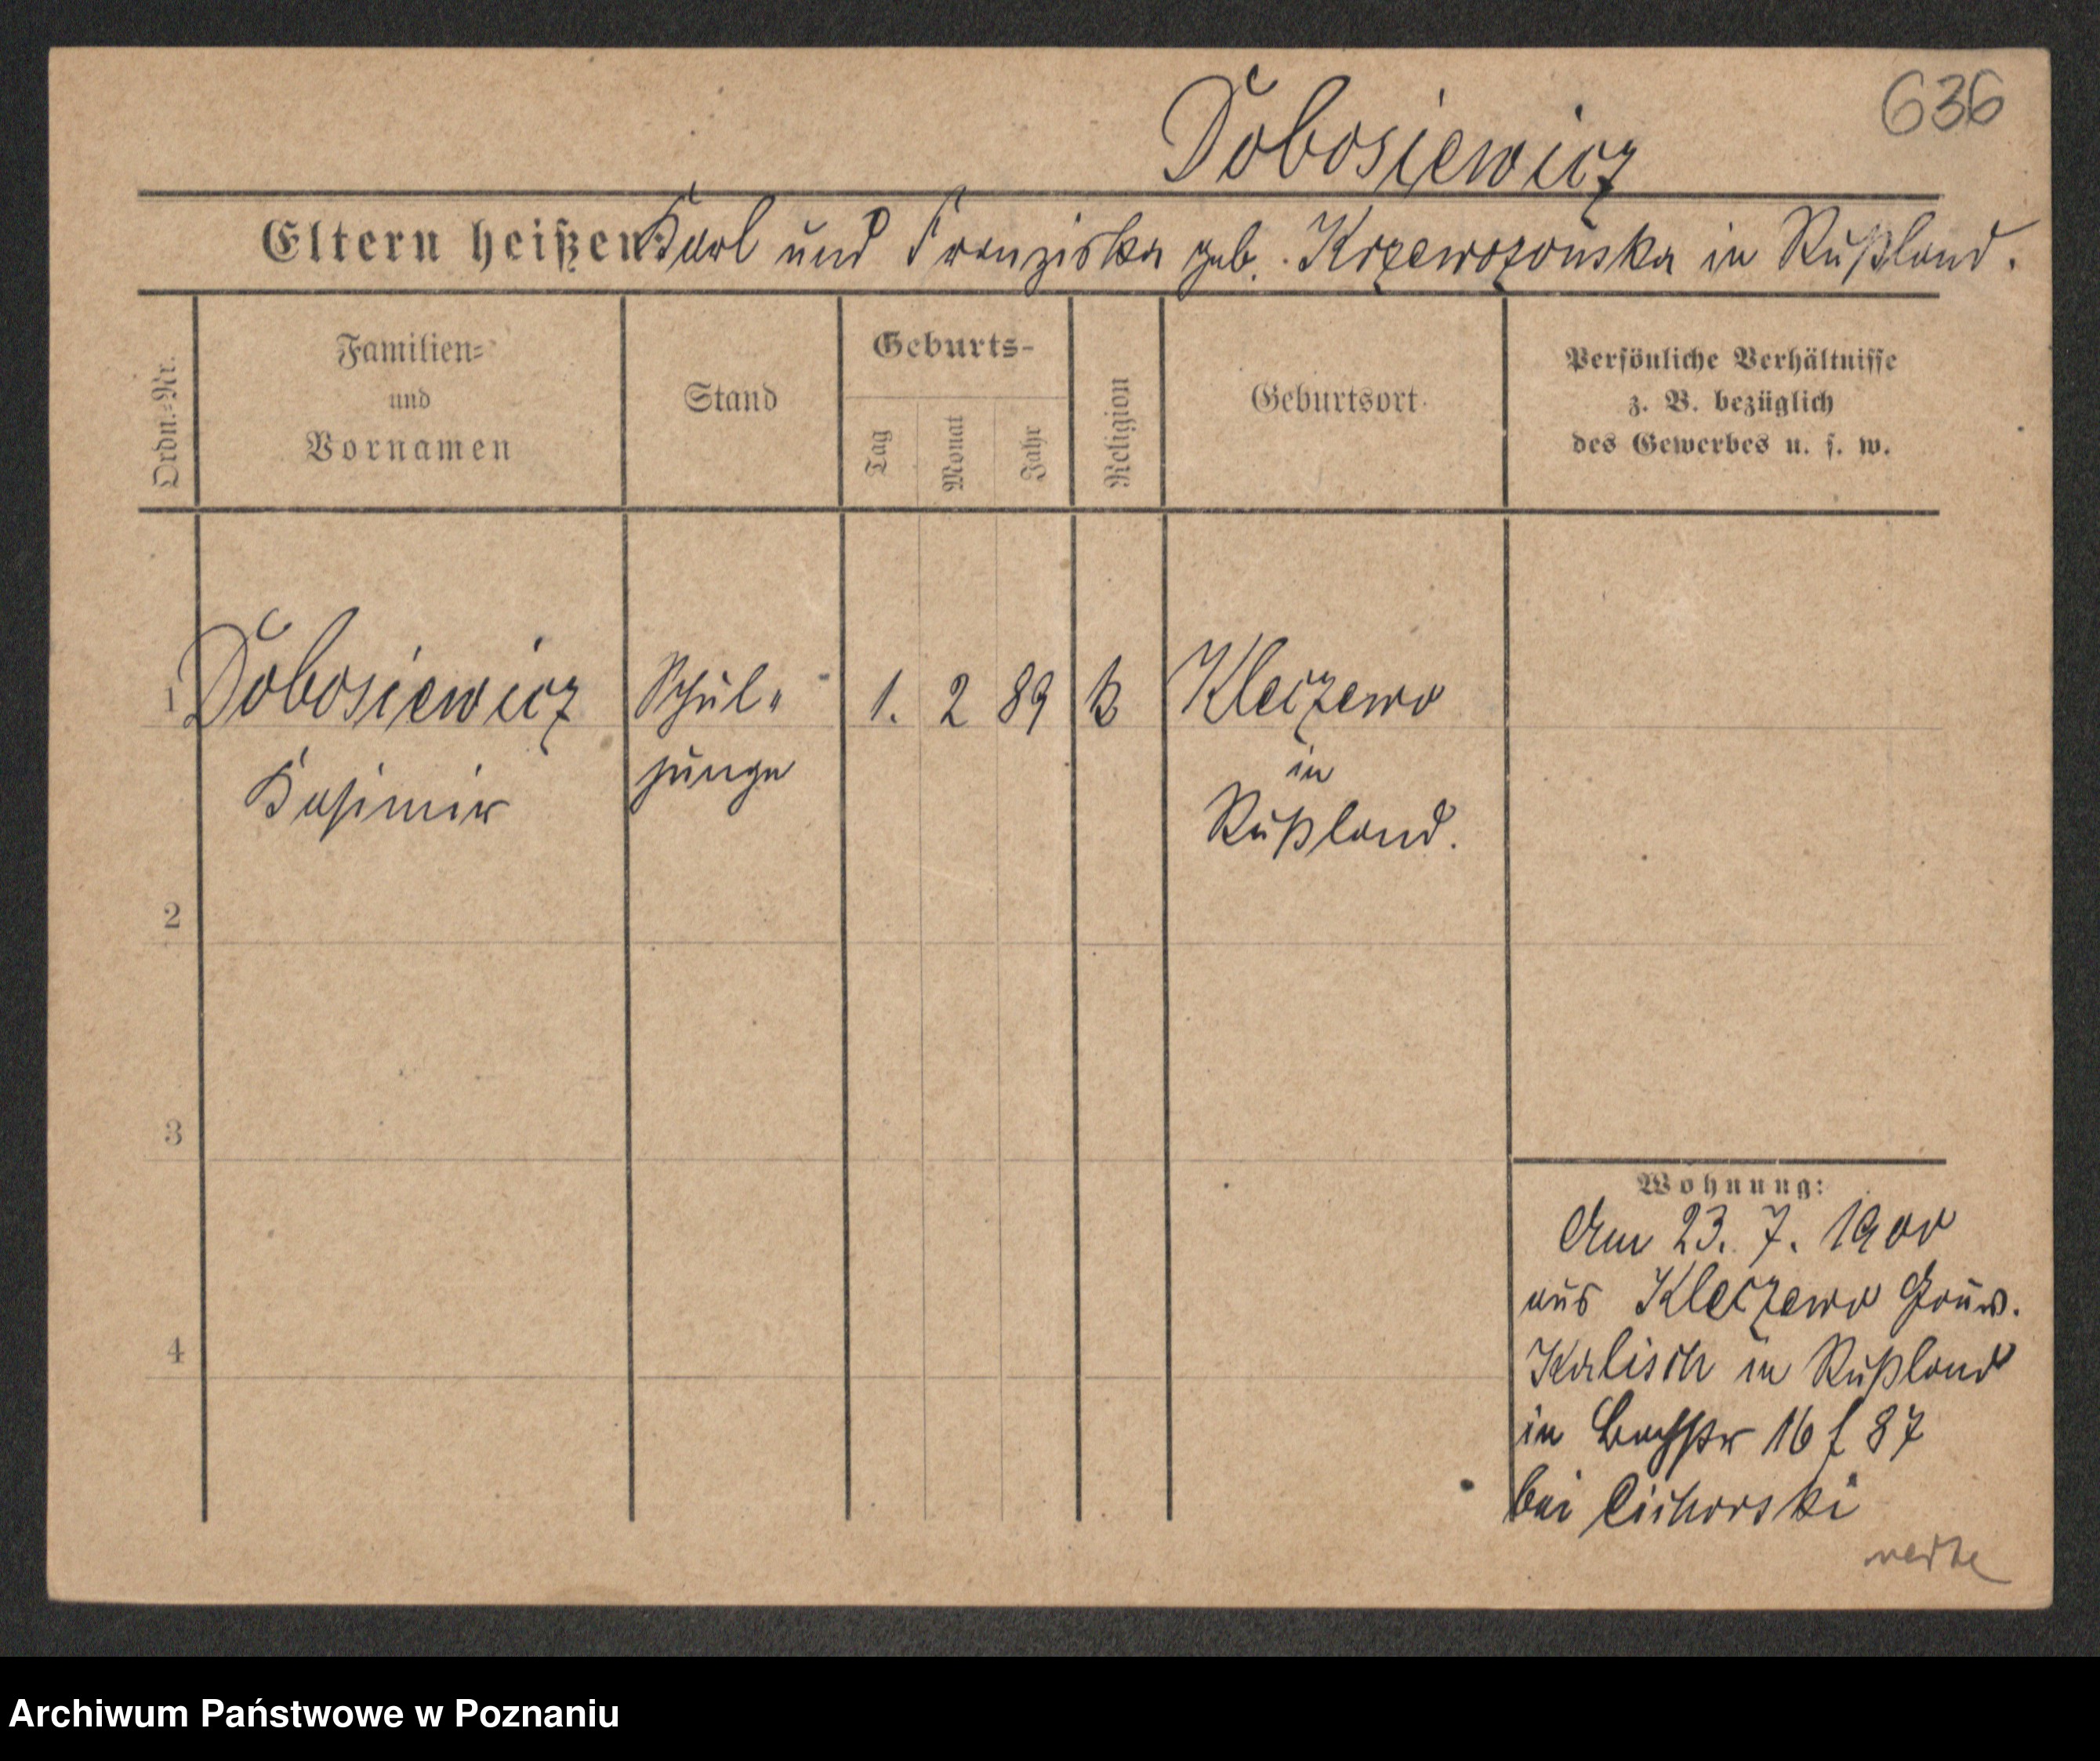 636
Dobosiewicz
Eltern heißen: Karl und Franziska geb. Krzewozouska in Rußland.
Ordn.-Nr.
Familien-
und
Vornamen
Stand
Geburts-
Tag
Monat
Jahr
Religion
Geburtsort
Persönliche Verhältnisse
z. B. bezüglich
des Gewerbes u. s. w.
1 Dobosiewicz Schul- 1. 2 89 k Kleczewo
Kasimir junge in
Rußland.
2
3
4
Wohnung:
Am 23. 7. 1900
aus Kleczewo Gouv.
Kalisch in Rußland
in 16 f 87
bei Cichorski
Archiwum Państwowe w Poznaniu